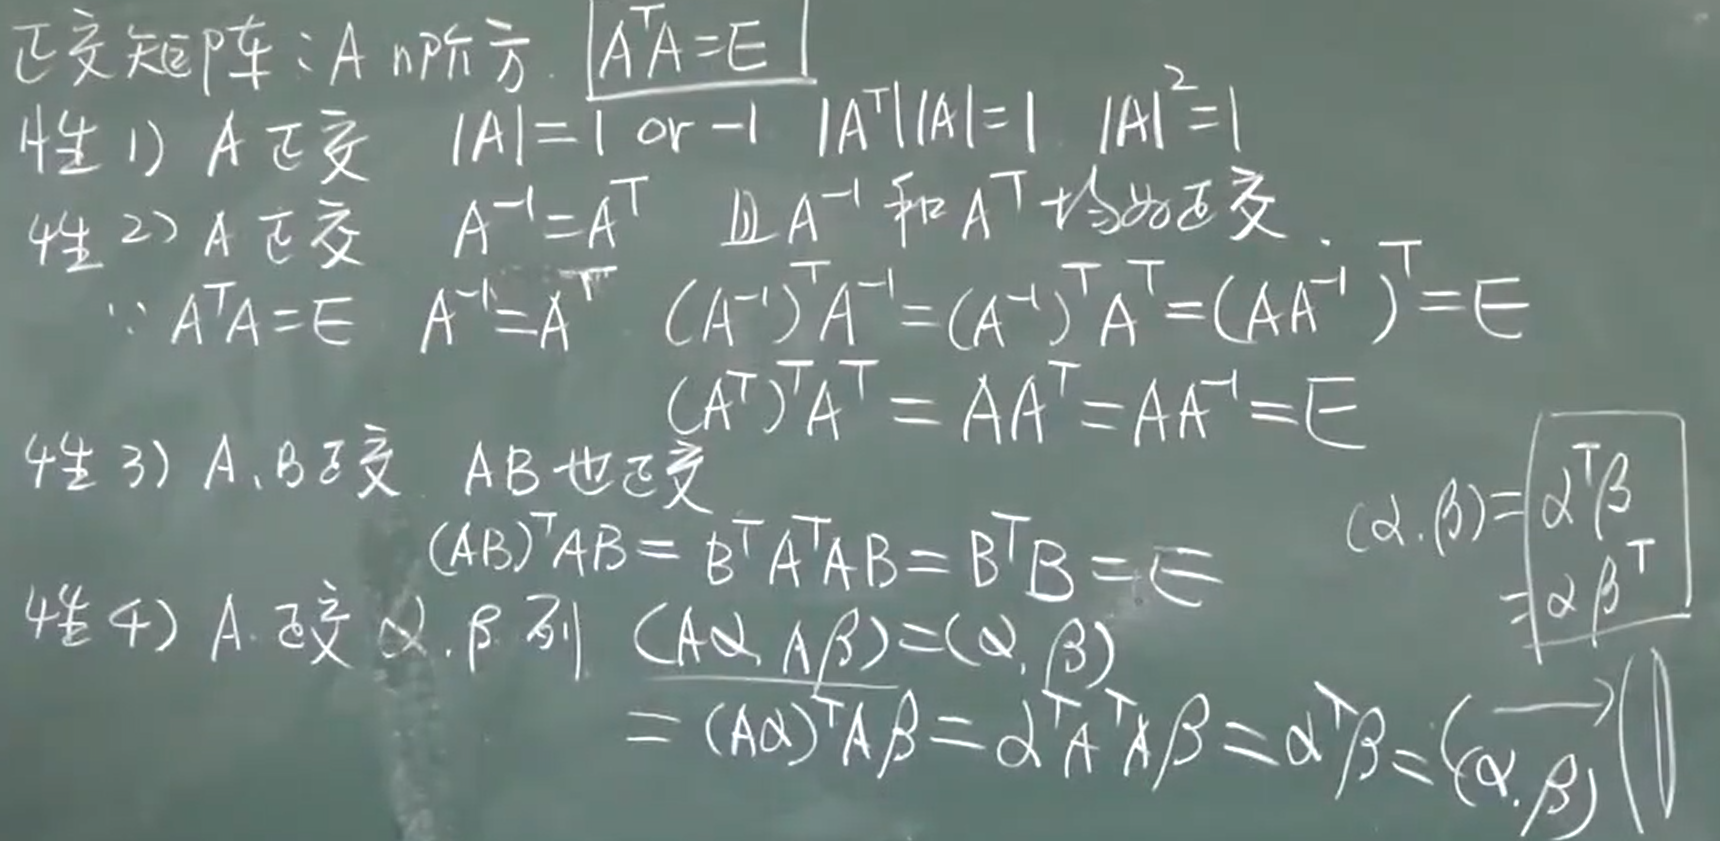 正交矩阵:A n阶方. AᵀA=E
性1) A正交 |A|=1 or -1 |Aᵀ||A|=1 |A|²=1
性2) A正交 A⁻¹=Aᵀ 且A⁻¹和Aᵀ均为正交.
∵AᵀA=E A⁻¹=Aᵀ (A⁻¹)ᵀA⁻¹=(A⁻¹)ᵀAᵀ=(AA⁻¹)ᵀ=E
(Aᵀ)ᵀAᵀ=AAᵀ=AA⁻¹=E
性3) A、B正交. AB也正交
(AB)ᵀAB=BᵀAᵀAB=BᵀB=E
(α.β)=αᵀβ
=αβᵀ
性4) A.正交 α.β列. (Aα,Aβ)=(α,β)
=(Aα)ᵀAβ=αᵀAᵀAβ=αᵀβ=(α.β)